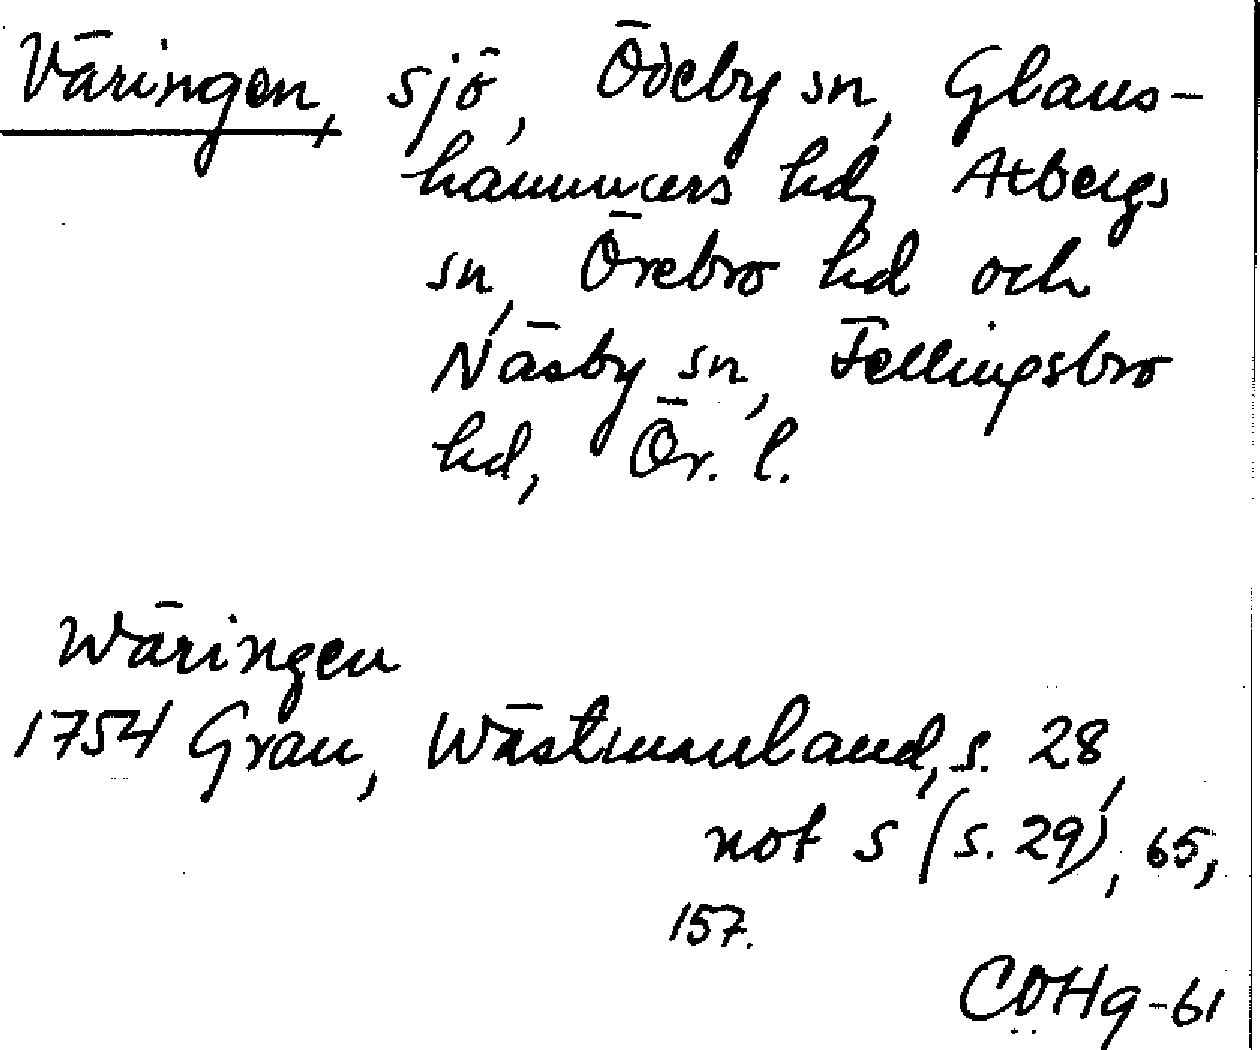 Väringen, sjö, Ödeby sn, Glans-
hammers hd, Axbergs
sn, Örebro hd och
Näsby sn, Fellingsbro
hd, Ör. l.
Wäringen
1754 Grau, Wästmanland, s. 28,
not s (s. 29), 65,
157.
COHg-61